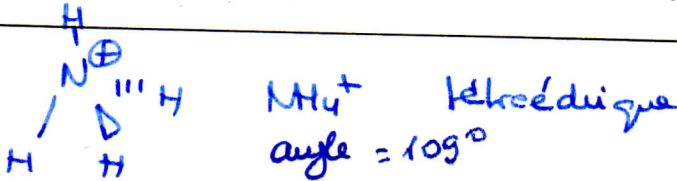 H
N ⊕
''' H
H
H
NH4+ tétraédrique
angle = 109°